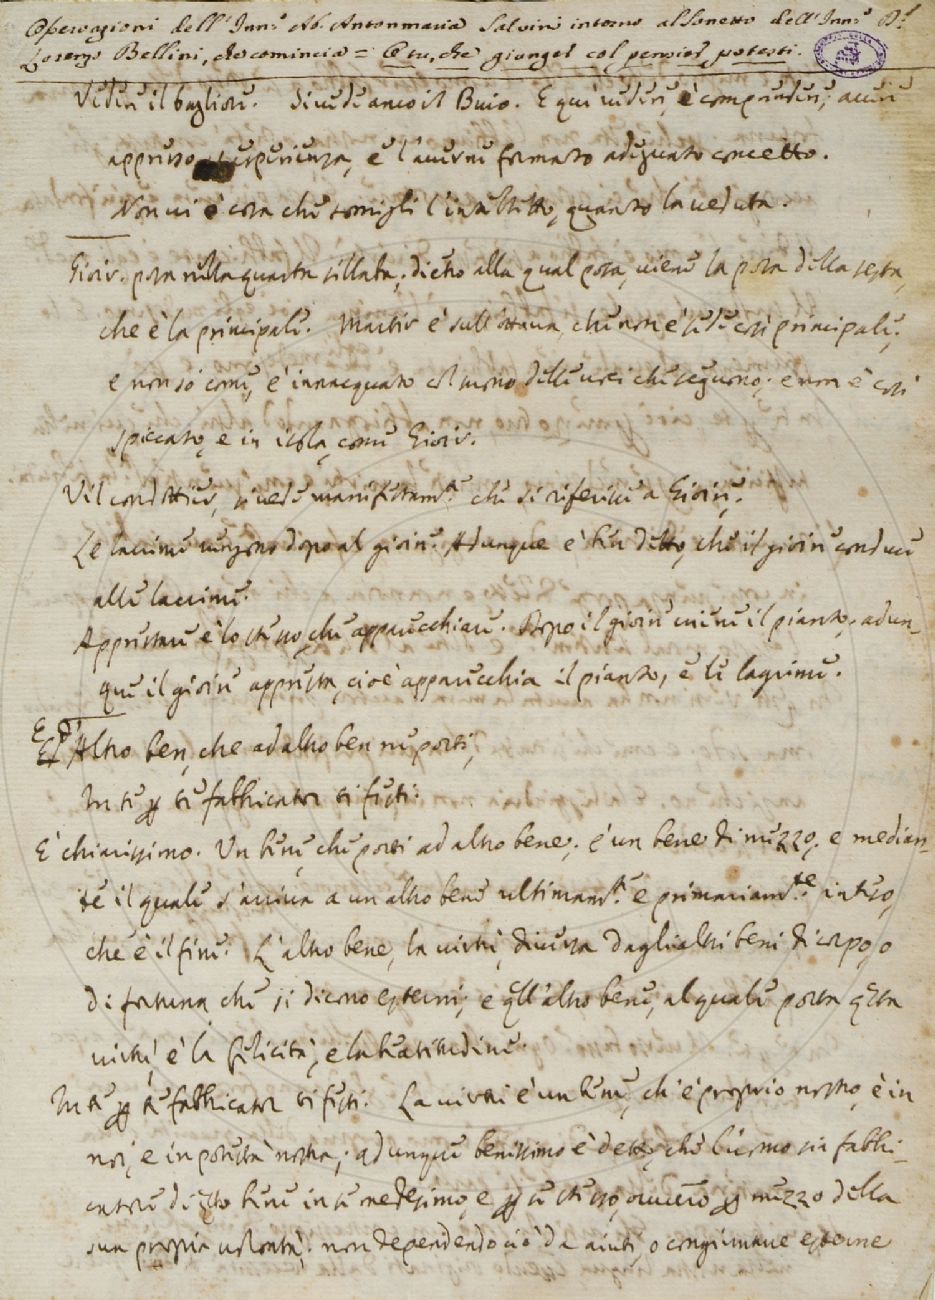 Osservazioni dell'Inn.º Ab. Antonmaria Salvini intorno al sonetto dell'Inn.º D.r
Lorenzo Bellini, che comincia = O tu, che giunger col pensier potesti.
Veder il bagliore. Si vede anco il Buio. E quì vedere, è comprendere, avere
appreso esperienza, e l'averne formato adeguato concetto.
Non vi è cosa che somigli l'intelletto, quanto la veduta.
Gioir. posa nella quarta sillaba; dietro alla qual posa, viene la posa della sesta,
che è la principale. Martir è sull'ottava, che non è sede così principale;
e non sò come, è innacquato col suono delle voci che seguono; e non è così
spiccato, e in isola, come Gioir.
Vil condottier, si vede manifestam.te che si riferisce a Gioire.
Le lacrime vengono dopo al gioire. Adunque è ben detto, che il gioire conduce
alle lacrime.
Apprestare è lo stesso, che apparecchiare. Dopo il gioire viene il pianto; adun-
que il gioire appresta, cioè apparecchia il pianto, e le lagrime.
Ed Altro ben, che ad altro ben ne porti,
In te per te fabbricator ti festi.
È chiarissimo. Un bene, che porti ad altro bene, è un bene di mezzo, e median-
te il quale s'arriva a un altro bene ultimam.te e primariam.te inteso,
che è il fine. L'altro bene, la virtù, diversa dagli altri beni di corpo, o
di fortuna, che si dicono esterni; e qll'altro bene, al quale porta qsta
virtù, è la felicità, e la beatitudine.
In te per te fabbricator ti festi. La virtù è un bene, ch'è proprio nostro, è in
noi, e in potestà nostra; adunque benissimo è detto, che l'uomo sia fabbri-
catore di qsto bene in se medesimo, e per se stesso, ovvero per mezzo della
sua propria volontà; non dependendo ciò da aiuti, o congiunture esterne